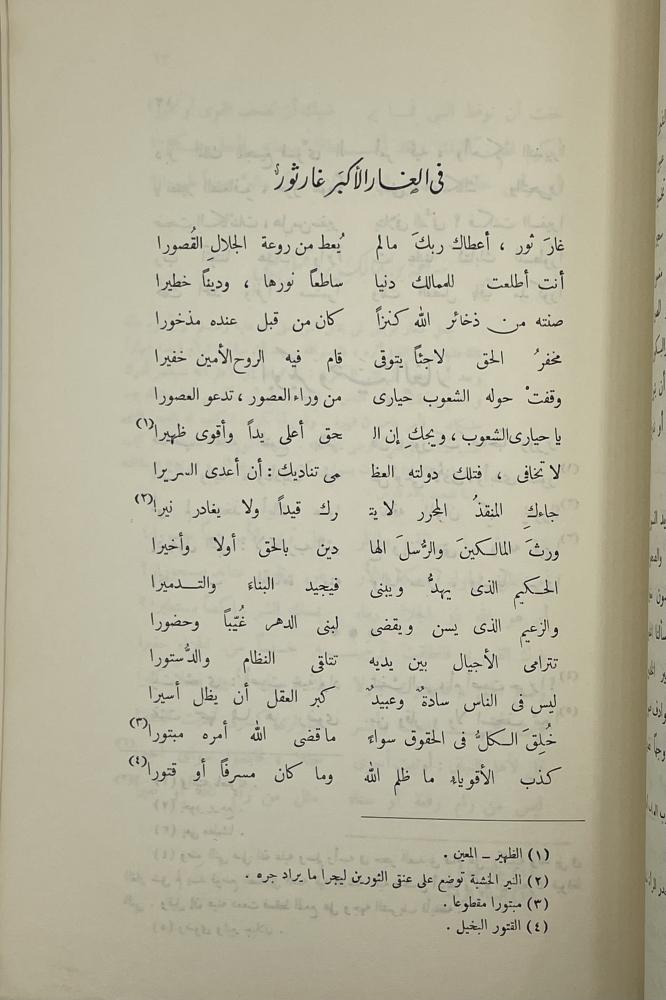 فى الغار الأكبر غار ثور
غارَ ثور ، أعطاك ربكَ مالم يُعط من روعة الجلالِ القُصورا
أنت أطلعت للممالك دنيا ساطعاً نورها ، وديناً خطيرا
صنته من ذخائر الله كنزاً كان من قبل عنده مذخورا
مخفرُ الحق لاجئاً يتوقى قام فيه الروح الأمين خفيرا
وقفتْ حوله الشعوب حيارى من وراء العصور ، تدعو العصورا
يا حيارى الشعوب ، ويحكِ إن الـ حق أعلى يداً وأقوى ظهيرا (١)
لا تخافى ، فتلك دولته العظـ مى تناديك : أن أعدى السريرا
جاءكِ المنقذُ المحرر لا يتـ رك قيداً ولا يغادر نيرا (٢)
ورثَ المالكينَ والرُّسلَ الها دين بالحق أولا وأخيرا
الحكيم الذى يهدُّ ويبنى فيجيد البناء والتدميرا
والزعيم الذى يسن ويقضى لبنى الدهر غُيَّباً وحضورا
تترامى الأجيال بين يديه تتلقى النظام والدُّستورا
ليس فى الناس سادةٌ وعبيدٌ كبر العقل أن يظل أسيرا
خُلِقَ الكلُّ فى الحقوق سواءً ما قضى الله أمره مبتورا (٣)
كذب الأقوياء ما ظلم الله وما كان مسرفاً أو قتورا (٤)
(١) الظهير ــ المعين .
(٢) النير الخشبة توضع على عنق الثورين ليجرا ما يراد جره .
(٣) مبتورا مقطوعا .
(٤) القتور البخيل .